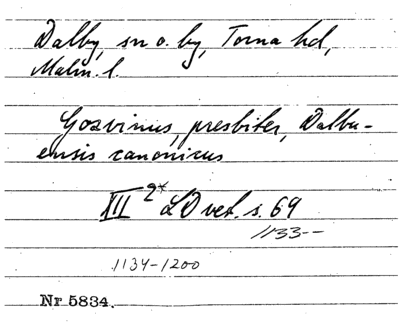 Dalby, sn o. by, Torna hd,
Malm. l.
Gozvinus, presbiter, Dalbu-
ensis canonicus
XII 2* LD vet. s. 69
1133--
1134-1200
Nr 5834.